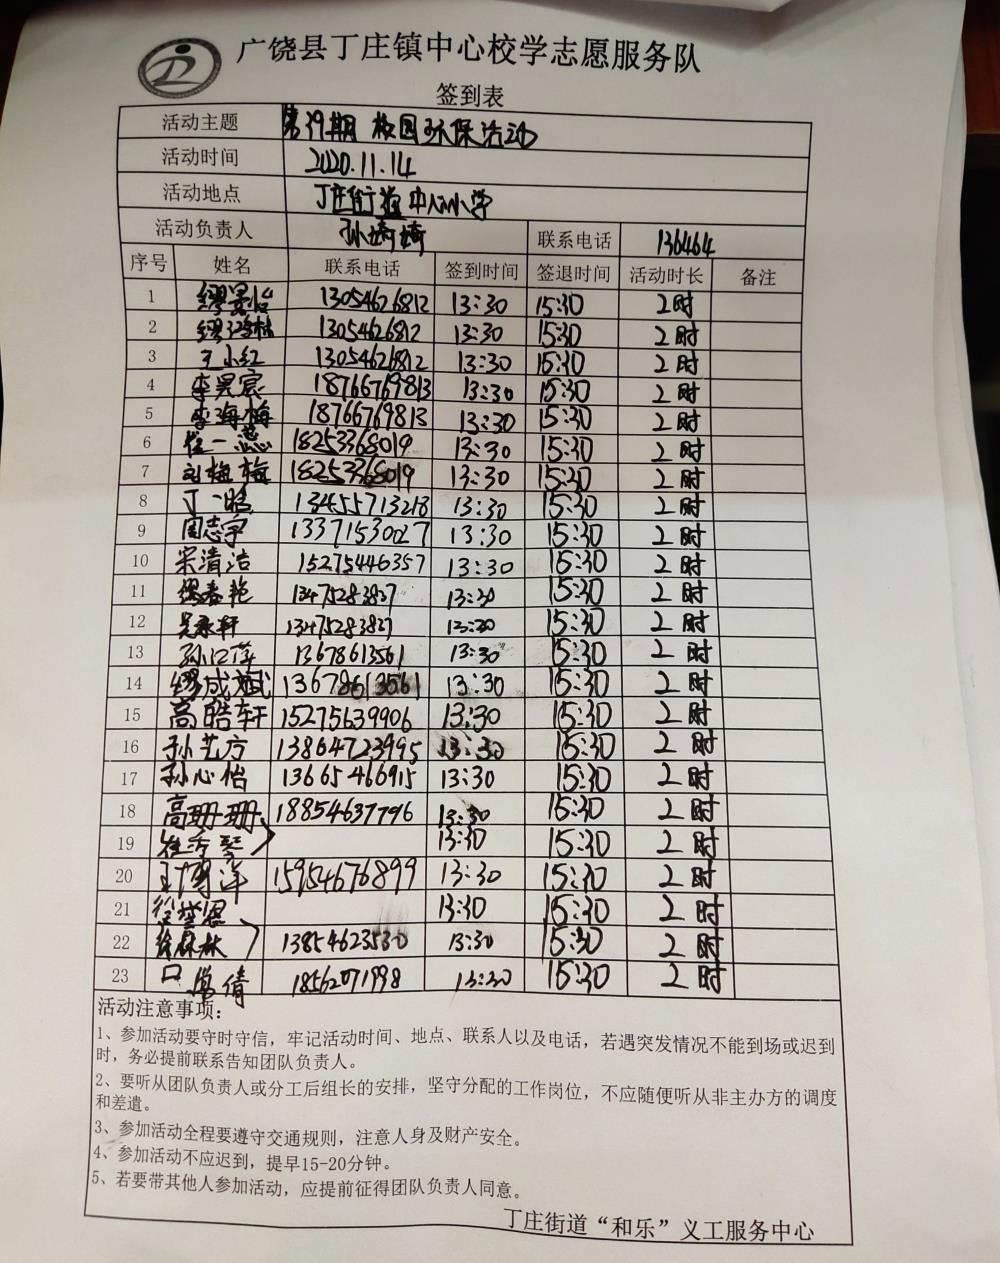 广饶县丁庄镇中心校学志愿服务队
签到表
活动主题 第39期 校园环保活动
活动时间 2020.11.14
活动地点 丁庄街道中心小学
活动负责人 孙绮绮 联系电话 136464
序号 姓名 联系电话 签到时间 签退时间 活动时长 备注
1 缪昊怡 13054626812 13:30 15:30 2时
2 13054626812 13:30 15:30 2时
3 王小红 13054626812 13:30 15:30 2时
4 李昊宸 18766769813 13:30 15:30 2时
5 李海梅 18766769813 13:30 15:30 2时
6 18253368019 13:30 15:30 2时
7 刘梅梅 18253368019 13:30 15:30 2时
8 丁一晗 13455713218 13:30 15:30 2时
9 周志宇 13371530027 13:30 15:30 2时
10 宋清洁 15275446357 13:30 15:30 2时
11 缪春艳 13475283827 13:30 15:30 2时
12 吴承轩 13475283827 13:30 15:30 2时
13 13678613561 13:30 15:30 2时
14 缪成斌 13678613561 13:30 15:30 2时
15 高皓轩 15275639906 13:30 15:30 2时
16 孙艺方 13864723995 13:30 15:30 2时
17 孙心怡 13665466915 13:30 15:30 2时
18 高珊珊 18854637796 13:30 15:30 2时
19 13:30 15:30 2时
20 王博洋 15954676899 13:30 15:30 2时
21 13:30 15:30 2时
22 徐林林 13854623530 13:30 15:30 2时
23 18562071998 13:30 15:30 2时
活动注意事项：
1、参加活动要守时守信，牢记活动时间、地点、联系人以及电话，若遇突发情况不能到场或迟到
时，务必提前联系告知团队负责人。
2、要听从团队负责人或分工后组长的安排，坚守分配的工作岗位，不应随便听从非主办方的调度
和差遣。
3、参加活动全程要遵守交通规则，注意人身及财产安全。
4、参加活动不应迟到，提早15-20分钟。
5、若要带其他人参加活动，应提前征得团队负责人同意。
丁庄街道“和乐”义工服务中心